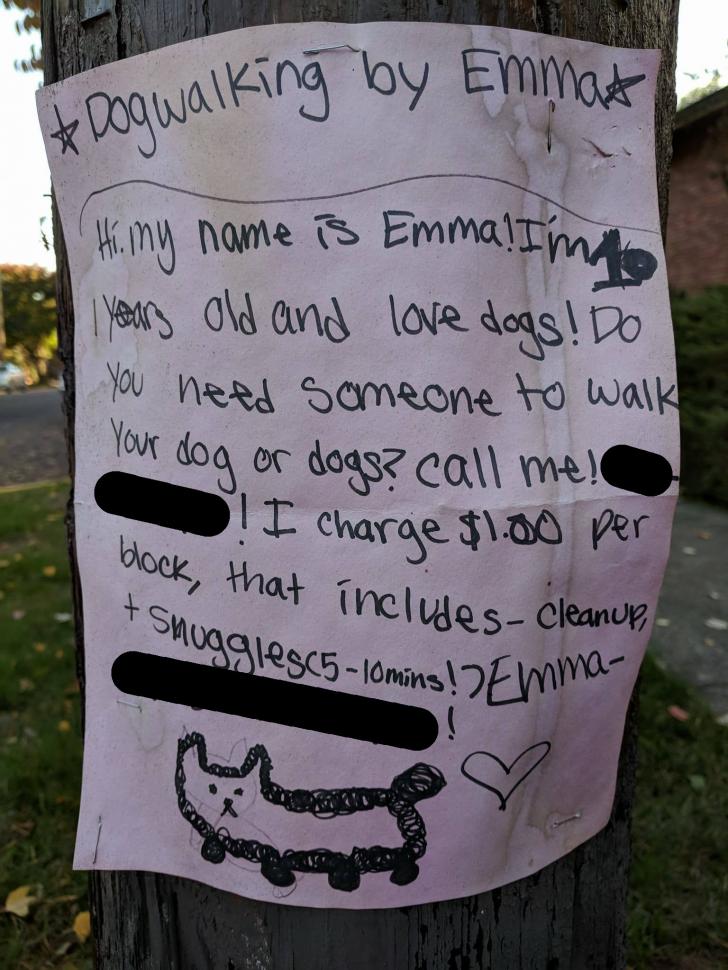 ☆Dogwalking by Emma☆
Hi. my name is Emma! I'm 10
years old and love dogs! Do
you need someone to walk
your dog or dogs? call me!
! I charge $1.00 per
block, that includes- cleanup,
+ snuggles(5-10mins!) Emma-
!